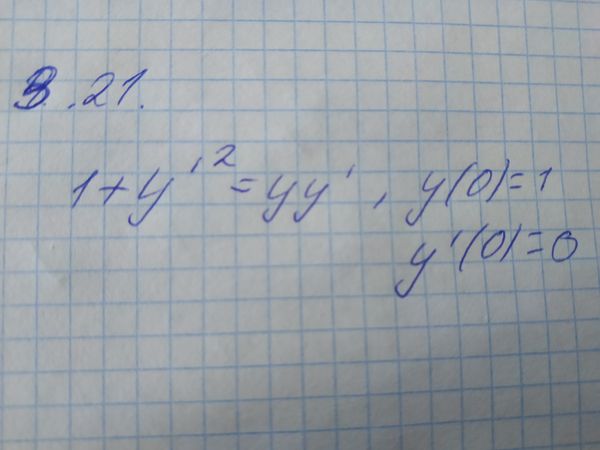 3.21.
1+y'²=yy', y(0)=1
y'(0)=0